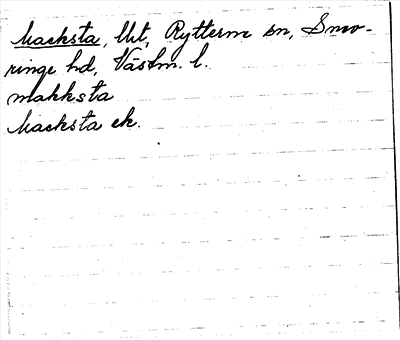 Macksta, Ut, Rytterne sn, Snev-
ringe hd, Västm. l.
makksta
Macksta ek.